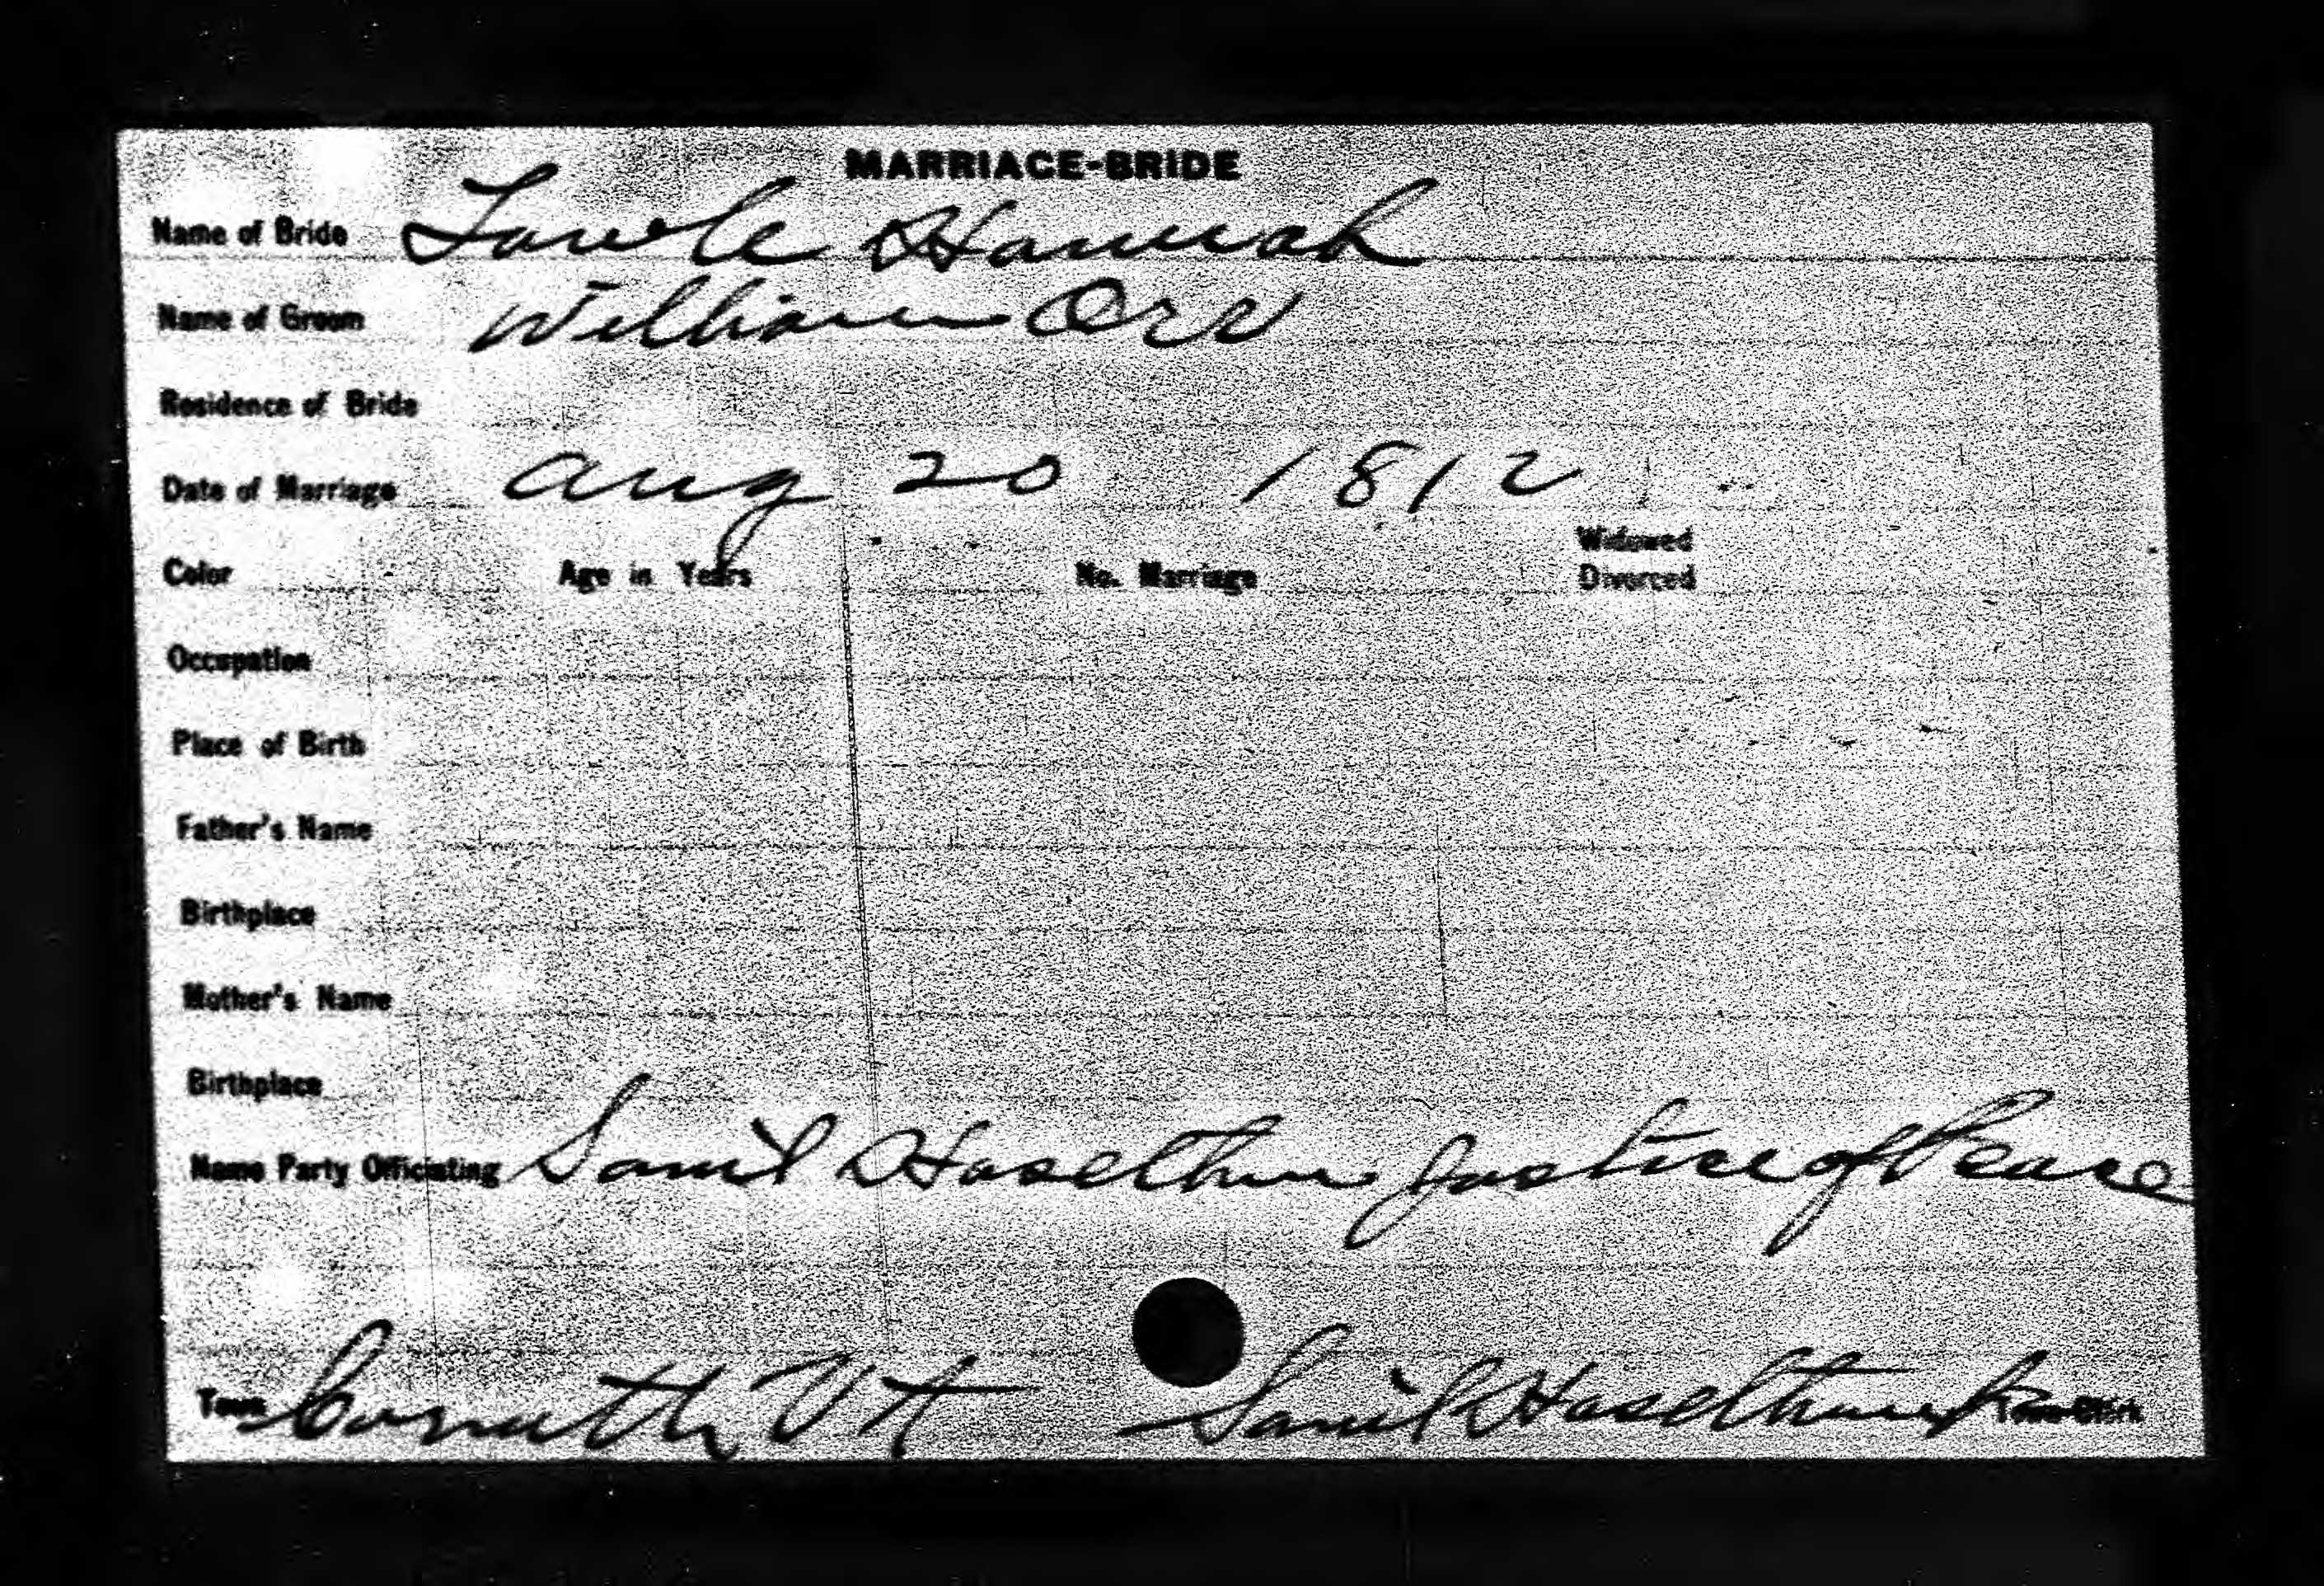 MARRIAGE-BRIDE
Name of Bride Towle Hannah
Name of Groom William Orr
Residence of Bride
Date of Marriage Aug 20 1812
Widowed
Color Age in Years No. Marriage Divorced
Occupation
Place of Birth
Father's Name
Birthplace
Mother's Name
Birthplace
Name Party Officiating Sam'l Haseltine Justice of Peace
Town Corinth Vt Sam'l Haseltine Town Clerk